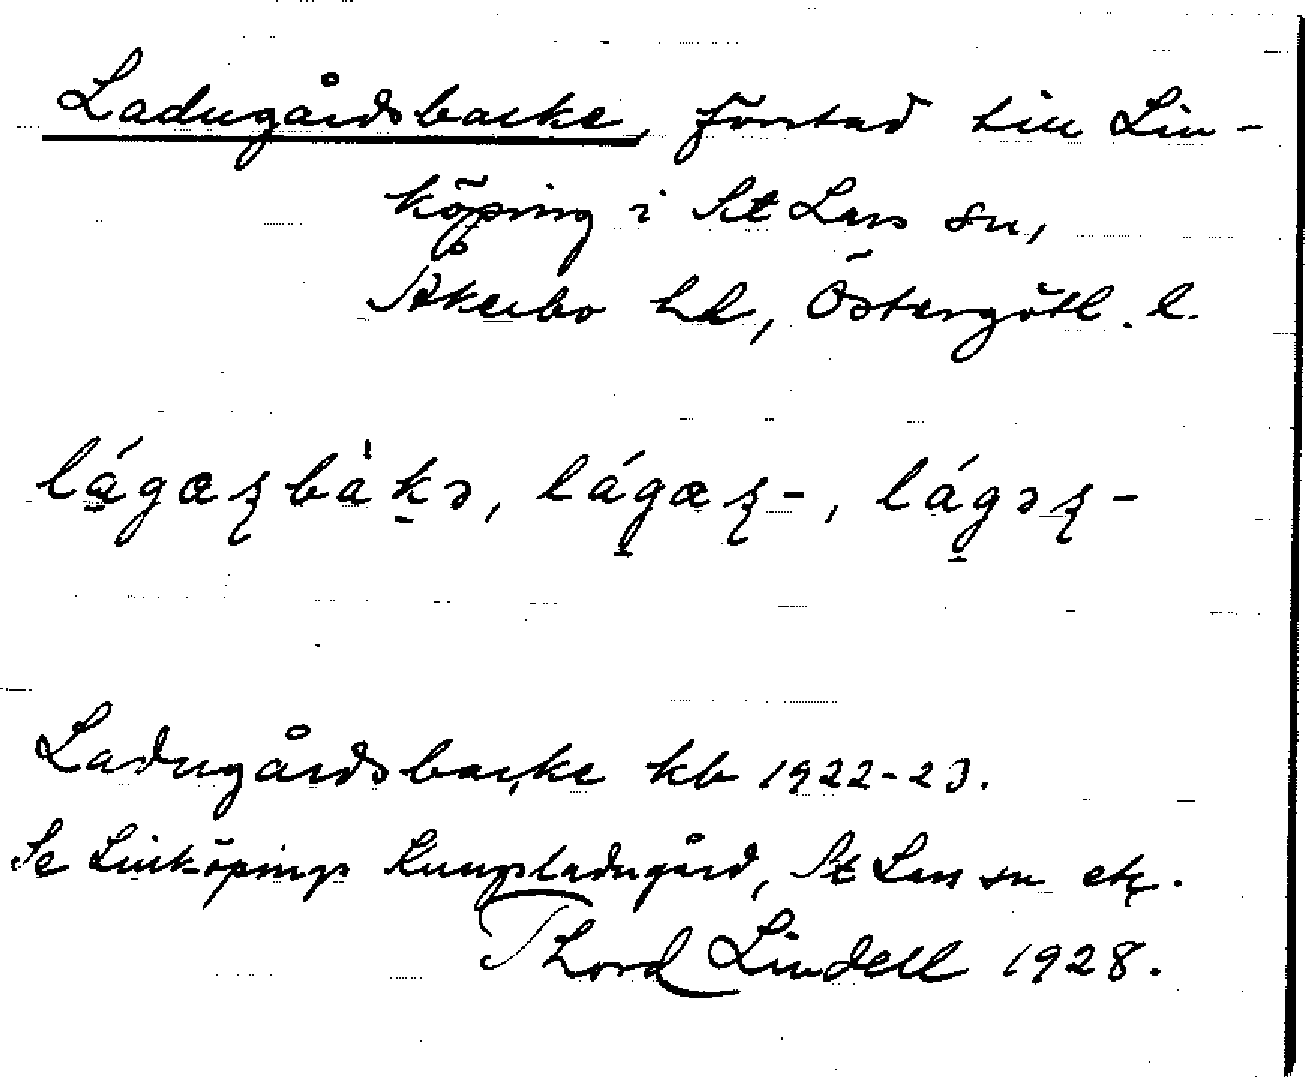 Ladugårdsbacke, förstad till Lin-
köping i St Lars sn,
Åkerbo hd, Östergötl. l.
lágæʂbàkə, lágæʂ-, lágəʂ-
Ladugårdsbacke kb 1922-23.
Se Linköpings Kungsladugård, St Lars sn etc.
Thord Lindell 1928.